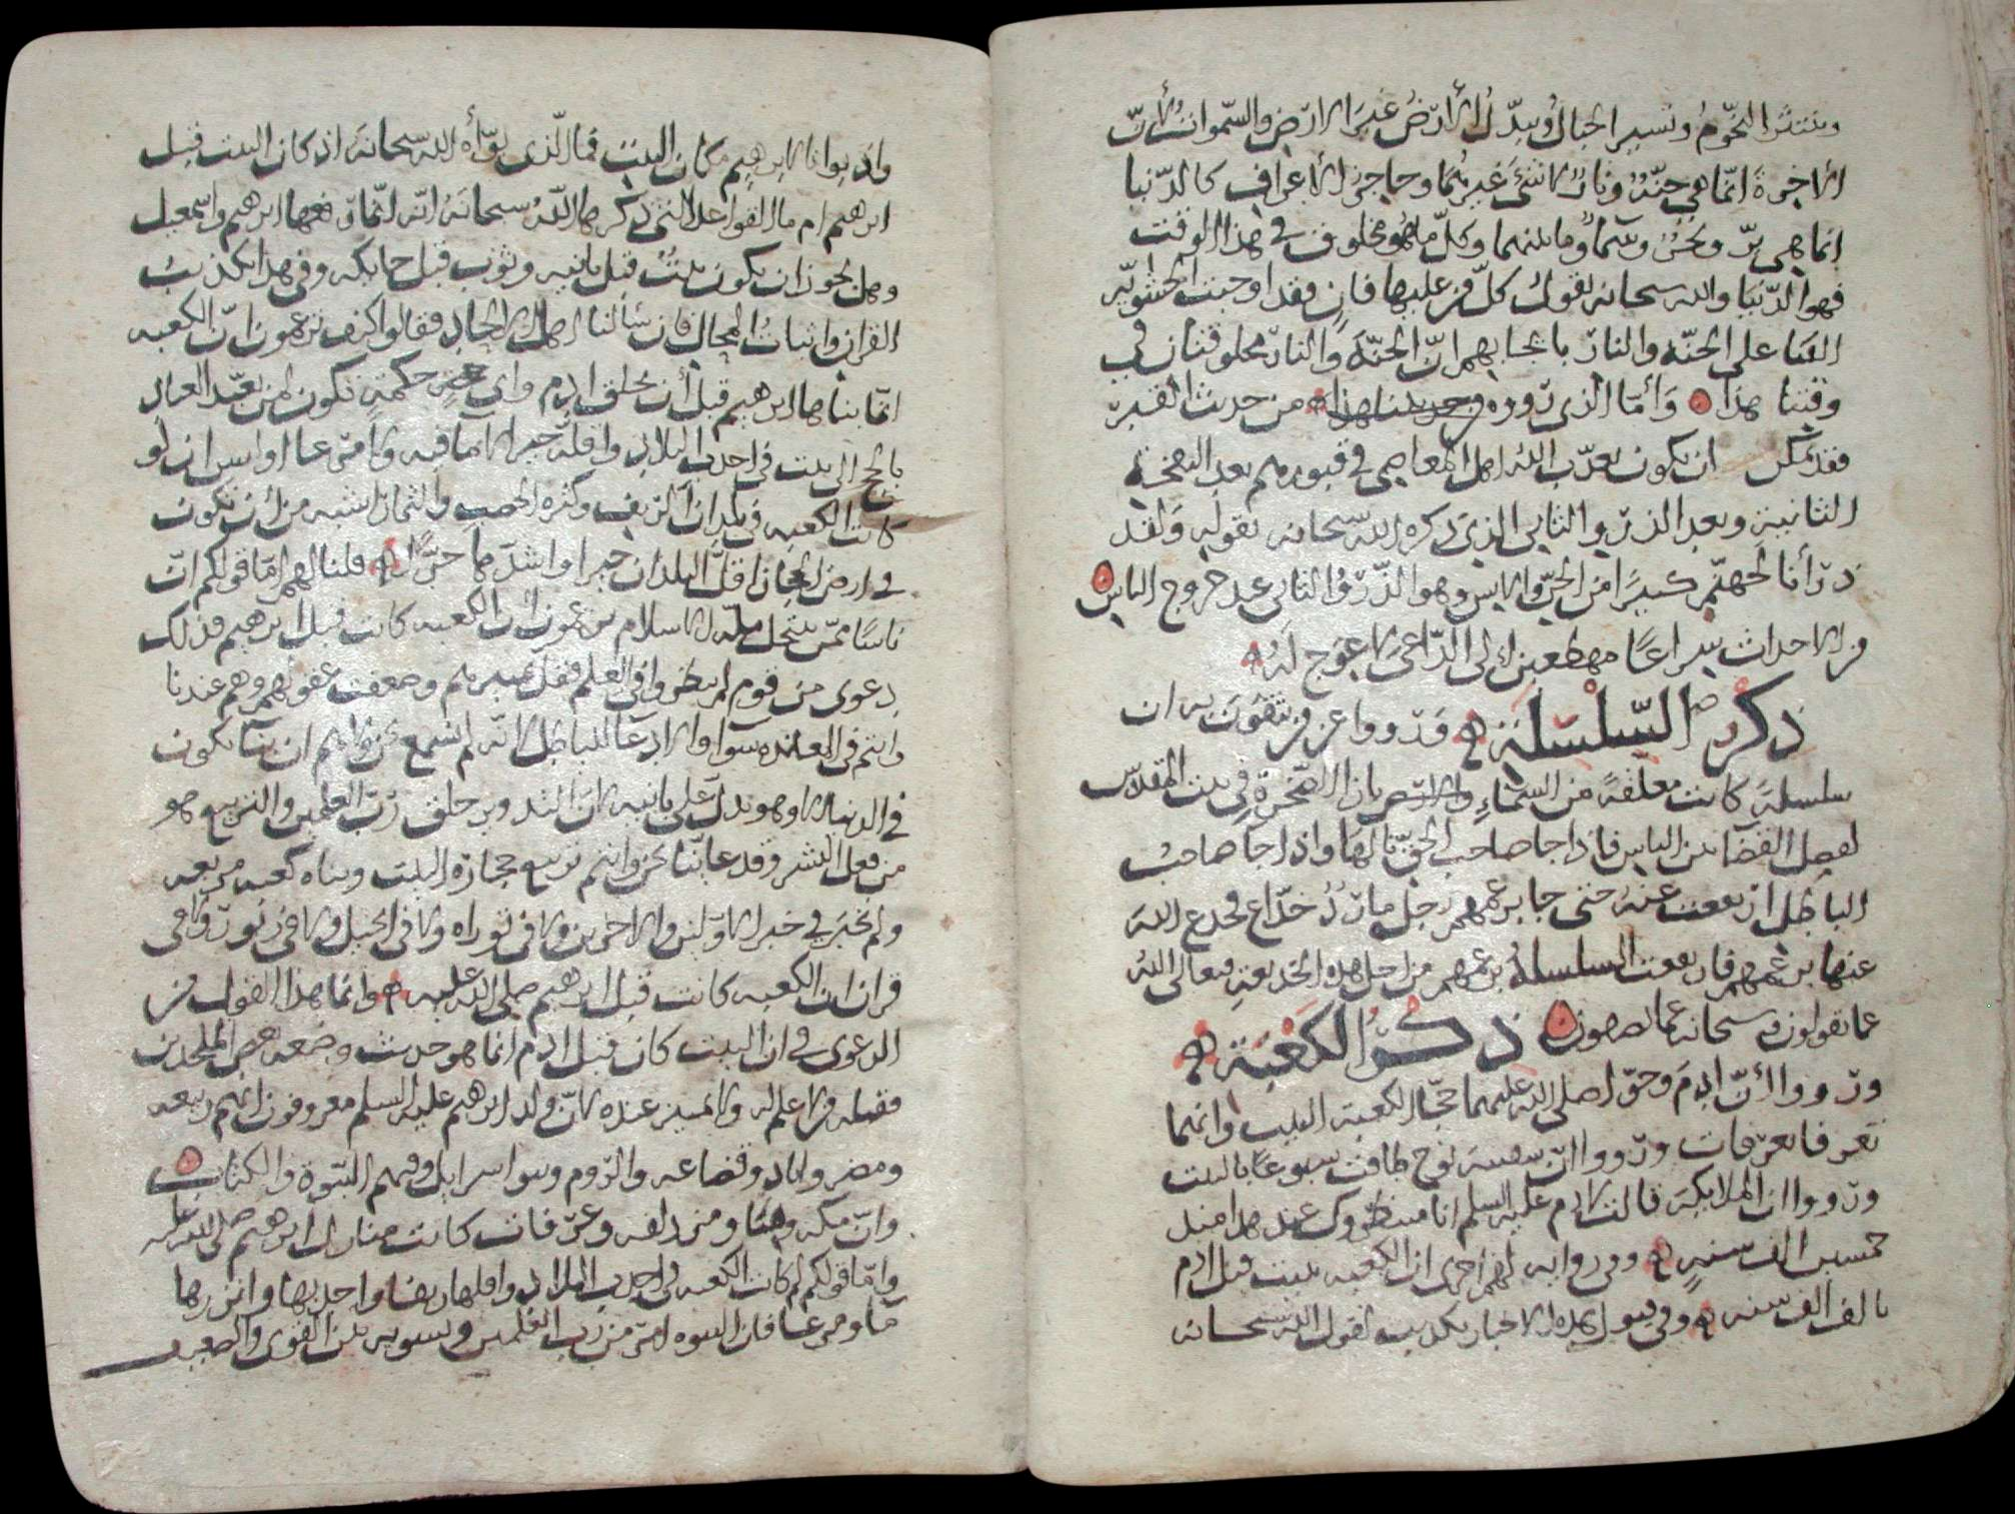 وتنتثر النجوم وتسير الجبال وتبدل الأرض غير الارض والسموات لأن
الاخرة انما هي جنة ونار لا شيء غيرهما وحاجز الاعراف كالدنيا
انما هي بر وبحر وسماء وما بينهما وكل ما هو مخلوق في هذا الوقت
فهو الدنيا والله سبحانه يقول كل من عليها فان فقد اوجبت الحشوية
الفنا على الجنة والنار بايجابهم ان الجنة والنار مخلوقتان في
وقتنا هذا وأما الذي رووه من حديث القبر
فقد يمكن ان يكون يعذب الله اهل المعاصي في قبورهم بعد النفخة
الثانية وبعد الذرو الثاني الذي ذكره الله سبحانه بقوله ولقد
ذرأنا لجهنم كثيرا من الجن والانس وهو الذرؤ الثاني عند خروج الناس
من الاجداث سراعا مهطعين الى الداعي لا عوج له
ذكر السلسلة وروواعن من يثقون به ان
سلسلة كانت معلقة من السماء بازا الصخرة في بيت المقدس
لفصل القضا بين الناس فاذا جا صاحب الحق نالها واذا جا صاحب
الباطل ارتفعت عنه حتى جا بزعمهم رجل مارد خداع فخدع الله
عنها بزعمهم فارتفعت السلسلة بزعمهم من اجل هذه الخديعة فتعالى الله
عما يقولون وسبحانه عما يصفون ذكر الكعبة
ورووا أن ادم وحوا صلى الله عليهما حجا الكعبة البيت وانهما
تعرفا بعرفات ورووا ان سفينة نوح طافت سبوعا بالبيت
ورووا ان الملايكة قالت لادم عليه السلم انا منتظروك عند هذا منذ
خمسين الف سنة وفي رواية لهم اخرى ان الكعبة بنيت قبل ادم
بالف الف سنة وفي قبول هذه الاخبار تكذيب لقول الله سبحانه
واذ بوانا لابراهيم مكان البيت فما الذي بوأه الله سبحانه اذ كان البيت قبل
ابرهيم ام ما القواعد التي ذكرها الله سبحانه انه انما رفعها ابرهيم واسمعيل
وهل يجوز ان يكون بيت قبل بانيه وثوب قبل حايكه وفي هذا تكذيب
القران واثبات المحال فان سألنا اهل الالحاد فقالوا كيف تزعمون ان الكعبه
انما بناها ابرهيم قبل أن يخلق ادم واي حكمة تكون لمن تعبد العباد
بالحج الى بيت في اجدب البلاد واقله خيرا لا ما فيه ولا مرعا اوليس ان لو
كانت الكعبه في بلدان الريف وكثره الخصب والثمار اشبه من أن تكون
في ارض الحجاز اقل البلدان خيرا واشدها حرا قلنا لهم اما قولكم ان
ناسا ممن ينتحل ملة الاسلام يزعمون ان الكعبه كانت قبل ابرهيم فذلك
دعوى من قوم لم ينظروا في العلم فقل تمييزهم وضعفت عقولهم وهم عندنا
وانتم في المعانده سوا والادعا للباطل لانه لم نسمع نحن وانتم ان بيتا يكون
في الدنيا الا وهو يدل على بانيه لان التدوير خلق رب العلمين والتربيع هو
من فعل البشر وقد عاينا نحن وانتم تربيع حجارة البيت وبناه كعبه مربعه
ولم نخبر في خبر الاولين والاخرين ولا في توراه ولا في انجيل ولا في زبور ولا في
قران ان الكعبه كانت قبل ابرهيم صلى الله عليه وانما هذا القول من
الدعوى في ان البيت كان قبل ادم انما هو حديث وضعه بعض الملحدين
فقبله من لا علم له ولا تمييز عنده لان ولد ابرهيم عليه السلم معروفون انهم ربيعه
ومضر واياد وقضاعه والروم وبنوا سرايل وفيهم النبوة والكتاب
وان مكه ومنا ومزدلفه وعرفات كانت منازل ابرهيم صلى الله عليه
واما قولكم لم كانت الكعبه في اجدب البلاد واقلها ريفا واجدبها وانزرها
مآء ومرعا فان النبوه امر من رب العلمين وتسويه بين القوى والضعيف